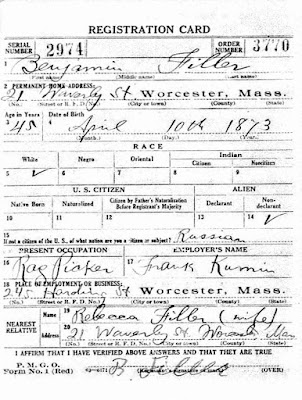 REGISTRATION CARD
SERIAL NUMBER 2974 ORDER NUMBER 3770
1 Benjamin Filler
First name) (Middle name) (Last name)
2 PERMANENT HOME ADDRESS:
21 Waverly St Worcester, Mass.
(Street or R. F. D. No.) (City or town) (County) (State)
Age in Years Date of Birth
3 45 4 April 10th 1873
(Month.) (Day.) (Year.)
RACE
White Negro Oriental Indian
Citizen Noncitizen
5 ✓ 6 7 8 9
U. S. CITIZEN ALIEN
Native Born Naturalized Citizen by Father's Naturalization Before Registrant's Majority Declarant Non-declarant
10 11 12 13 14 ✓
15 If not a citizen of the U. S., of what nation are you a citizen or subject? Russian
PRESENT OCCUPATION EMPLOYER'S NAME
16 Rag Picker 17 Frank Kumin
18 PLACE OF EMPLOYMENT OR BUSINESS:
Harding St Worcester, Mass.
(Street or R. F. D. No.) (City or town) (County) (State)
NEAREST RELATIVE Name 19 Rebecca Filler (wife)
Address 20 21 Waverly St. Worcester Mass
I AFFIRM THAT I HAVE VERIFIED ABOVE ANSWERS AND THAT THEY ARE TRUE
P. M. G. O.
Form No. 1 (Red) B (OVER)